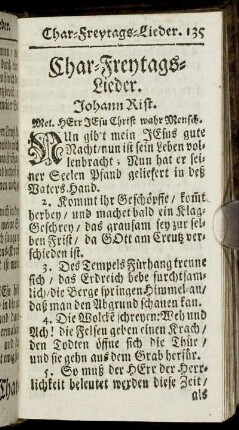 Char-Freytags-Lieder. 135
Char-Freytags-
Lieder.
Johann Rist.
Met. HErr JEsu Christ wahr Mensch.
NUn gibt mein JEsus gute
Nacht/ nun ist sein Leben vol-
lenbracht; Nun hat er sei-
ner Seelen Pfand geliefert in deß
Vaters Hand.
2. Kommt ihr Geschöpffe/ kom̃t
herbey/ und machet bald ein Klag-
Geschrey/ das grausam sey zur sel-
ben Frist/ da GOtt am Creutz ver-
schieden ist.
3. Des Tempels Fürhang trenne
sich/ das Erdreich bebe furchtsam-
lich/ die Berge springen Himmel-an/
daß man den Abgrund schauen kan.
4. Die Wolckẽ schreyen: Weh und
Ach! die Felsen geben einen Krach/
den Todten öffne sich die Thür/
und sie gehn aus dem Grab herfür.
5. So muß der HErr der Herr-
lichkeit beleutet werden diese Zeit/
als